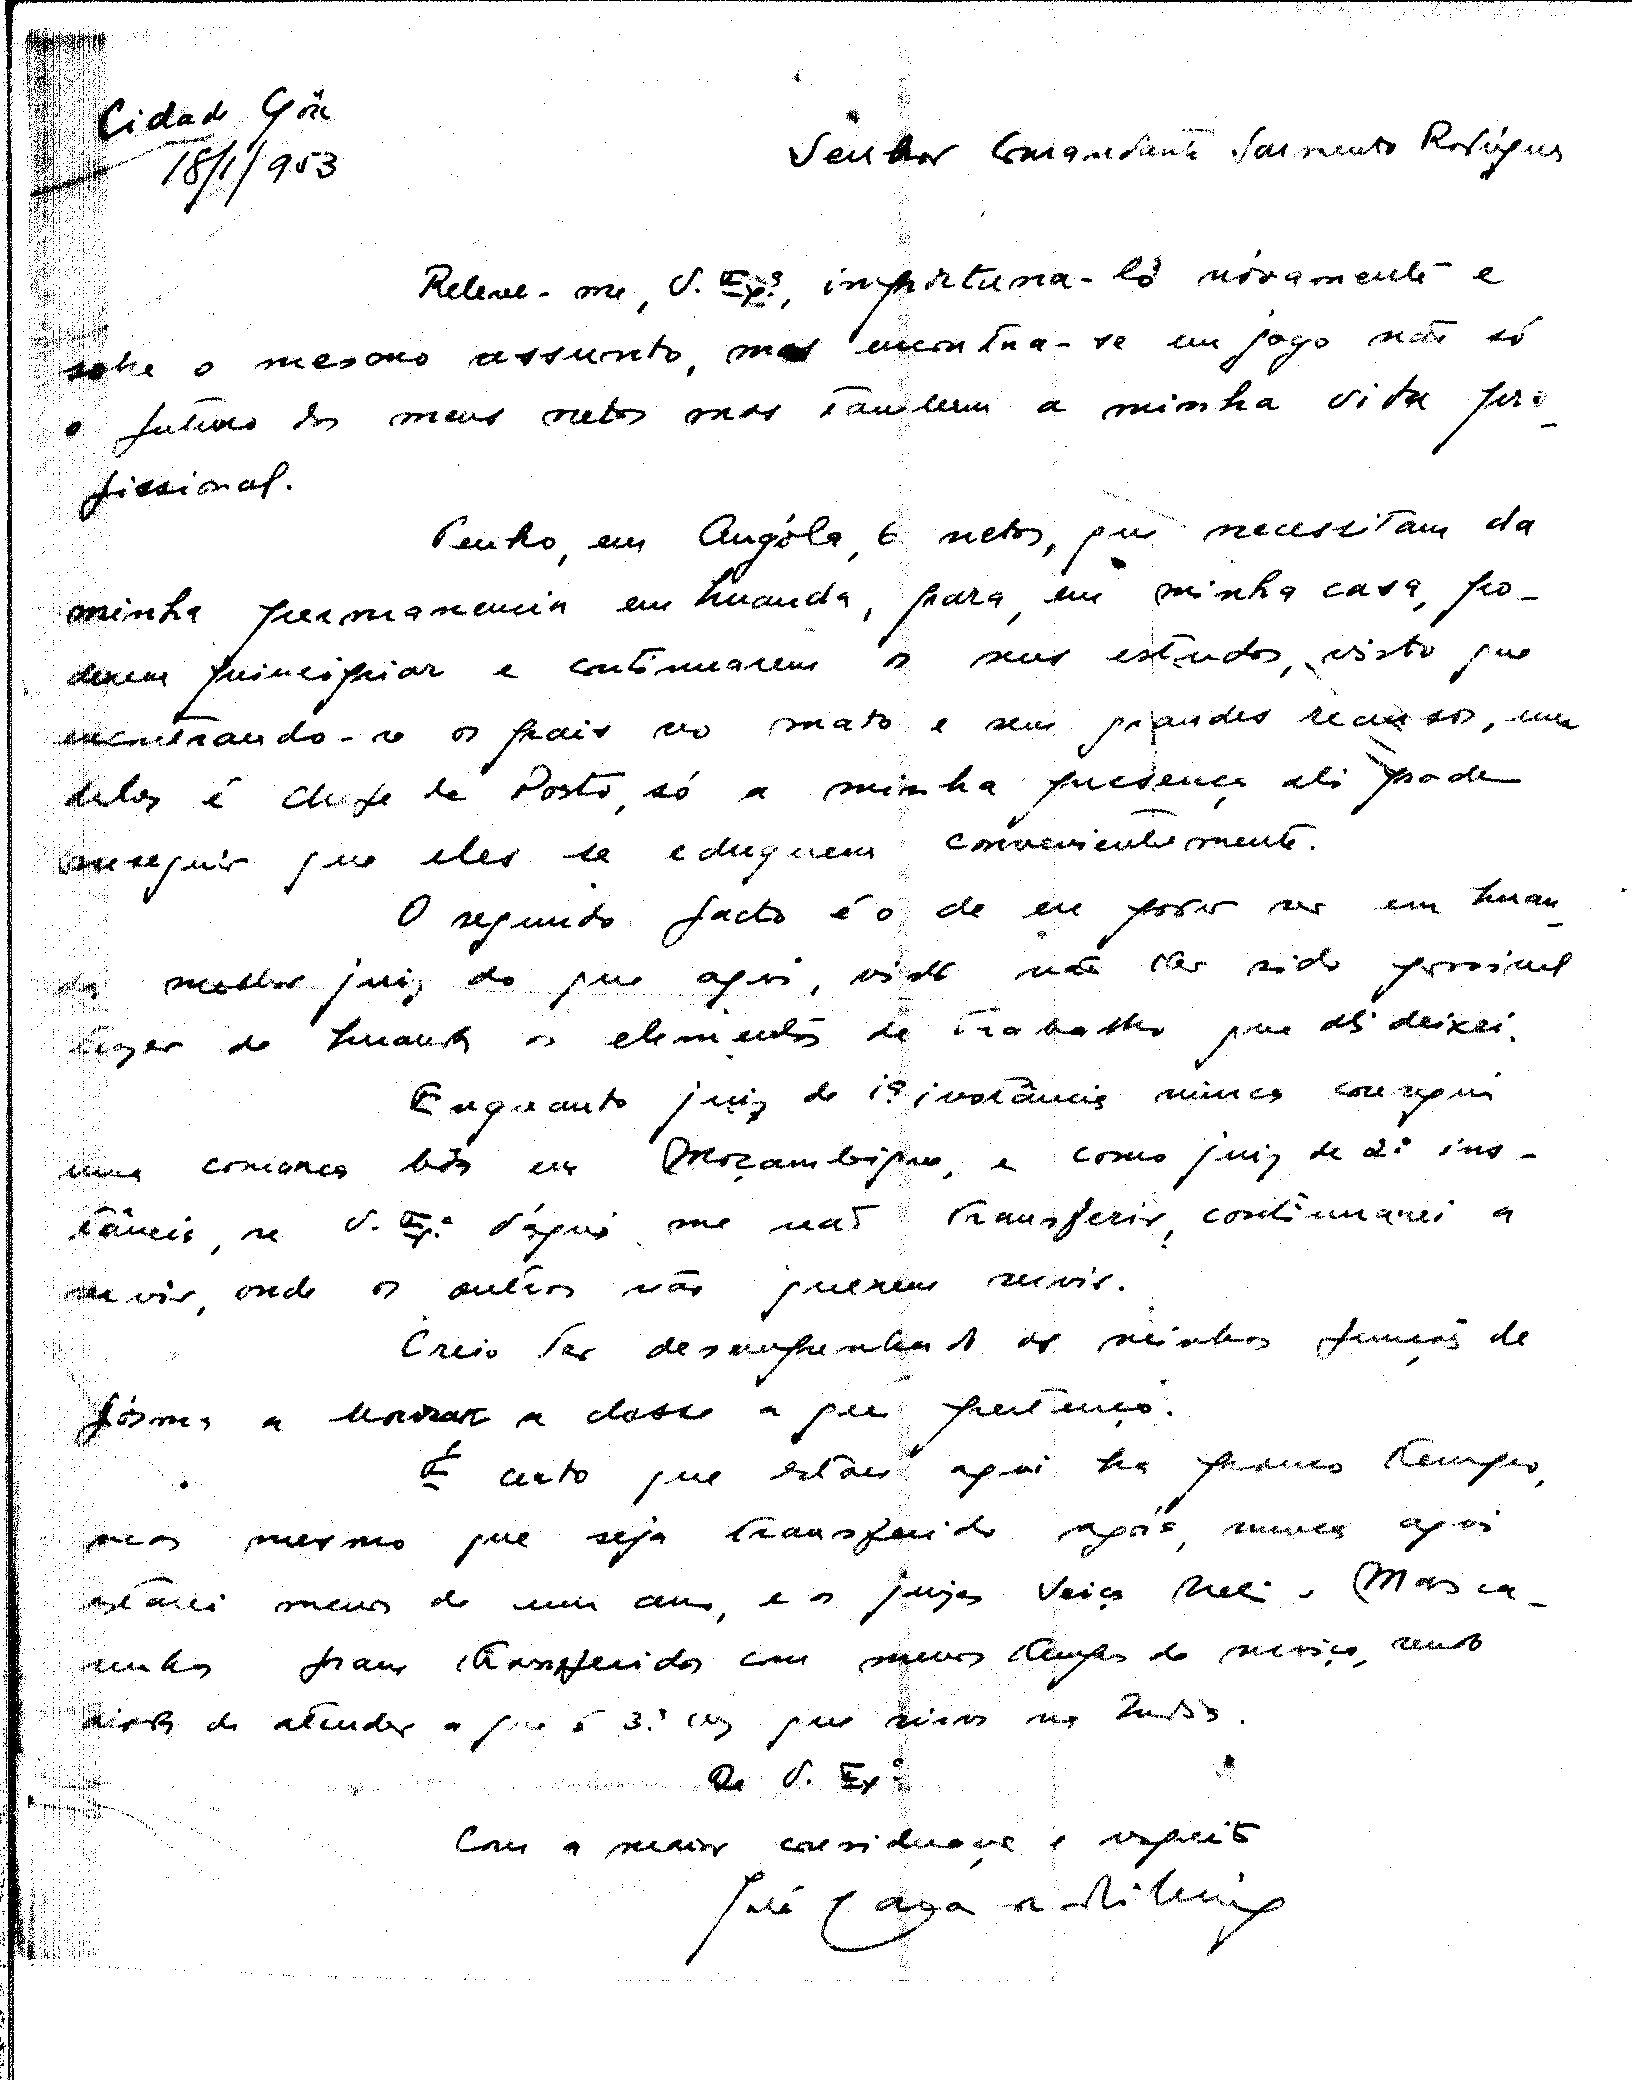 Cidade Gôa
18/1/953
Senhor Comandante Sarmento Rodrigues
Releve-me, V. Exª., importuna-lo nóvamente e
sobre o mesmo assunto, mas encontra-se em jogo não só
o futuro dos meus netos mas tambem a minha vida pro-
fissional.
Tenho, em Angóla, 6 netos, que necessitam da
minha permanencia em Luanda, para, em minha casa, po-
derem principiar e continuarem os seus estudos, visto que
encontrando-se os pais no mato e sem grandes recursos, um
deles é Chefe de Posto, só a minha presença ali pode
conseguir que eles se eduquem convenientemente.
O segundo facto é o de eu poder ser em Luan-
da melhor juiz do que aqui, visto não ter sido possivel
trazer de Luanda os elementos de trabalho que ali deixei.
Enquanto juiz de 1ª instância nunca consegui
uma comarca bôa em Moçambique, e como juiz de 2ª ins-
tância, se V. Exª. dáqui me não transferir, continuarei a
servir, onde os outros não querem servir.
Creio ter desempenhado as minhas funções de
fórma a honrar a classe a que pertenço.
É certo que estou aqui ha pouco tempo,
mas mesmo que seja transferido agóra, nunca aqui
estarei menos de um ano, e os juizes Veiga e Masca-
renhas foram transferidos com menos tempo de serviço, sendo
ainda de atender a que é 3ª vez que sirvo na India.
De V. Exª
Com a maior consideração e respeito
José